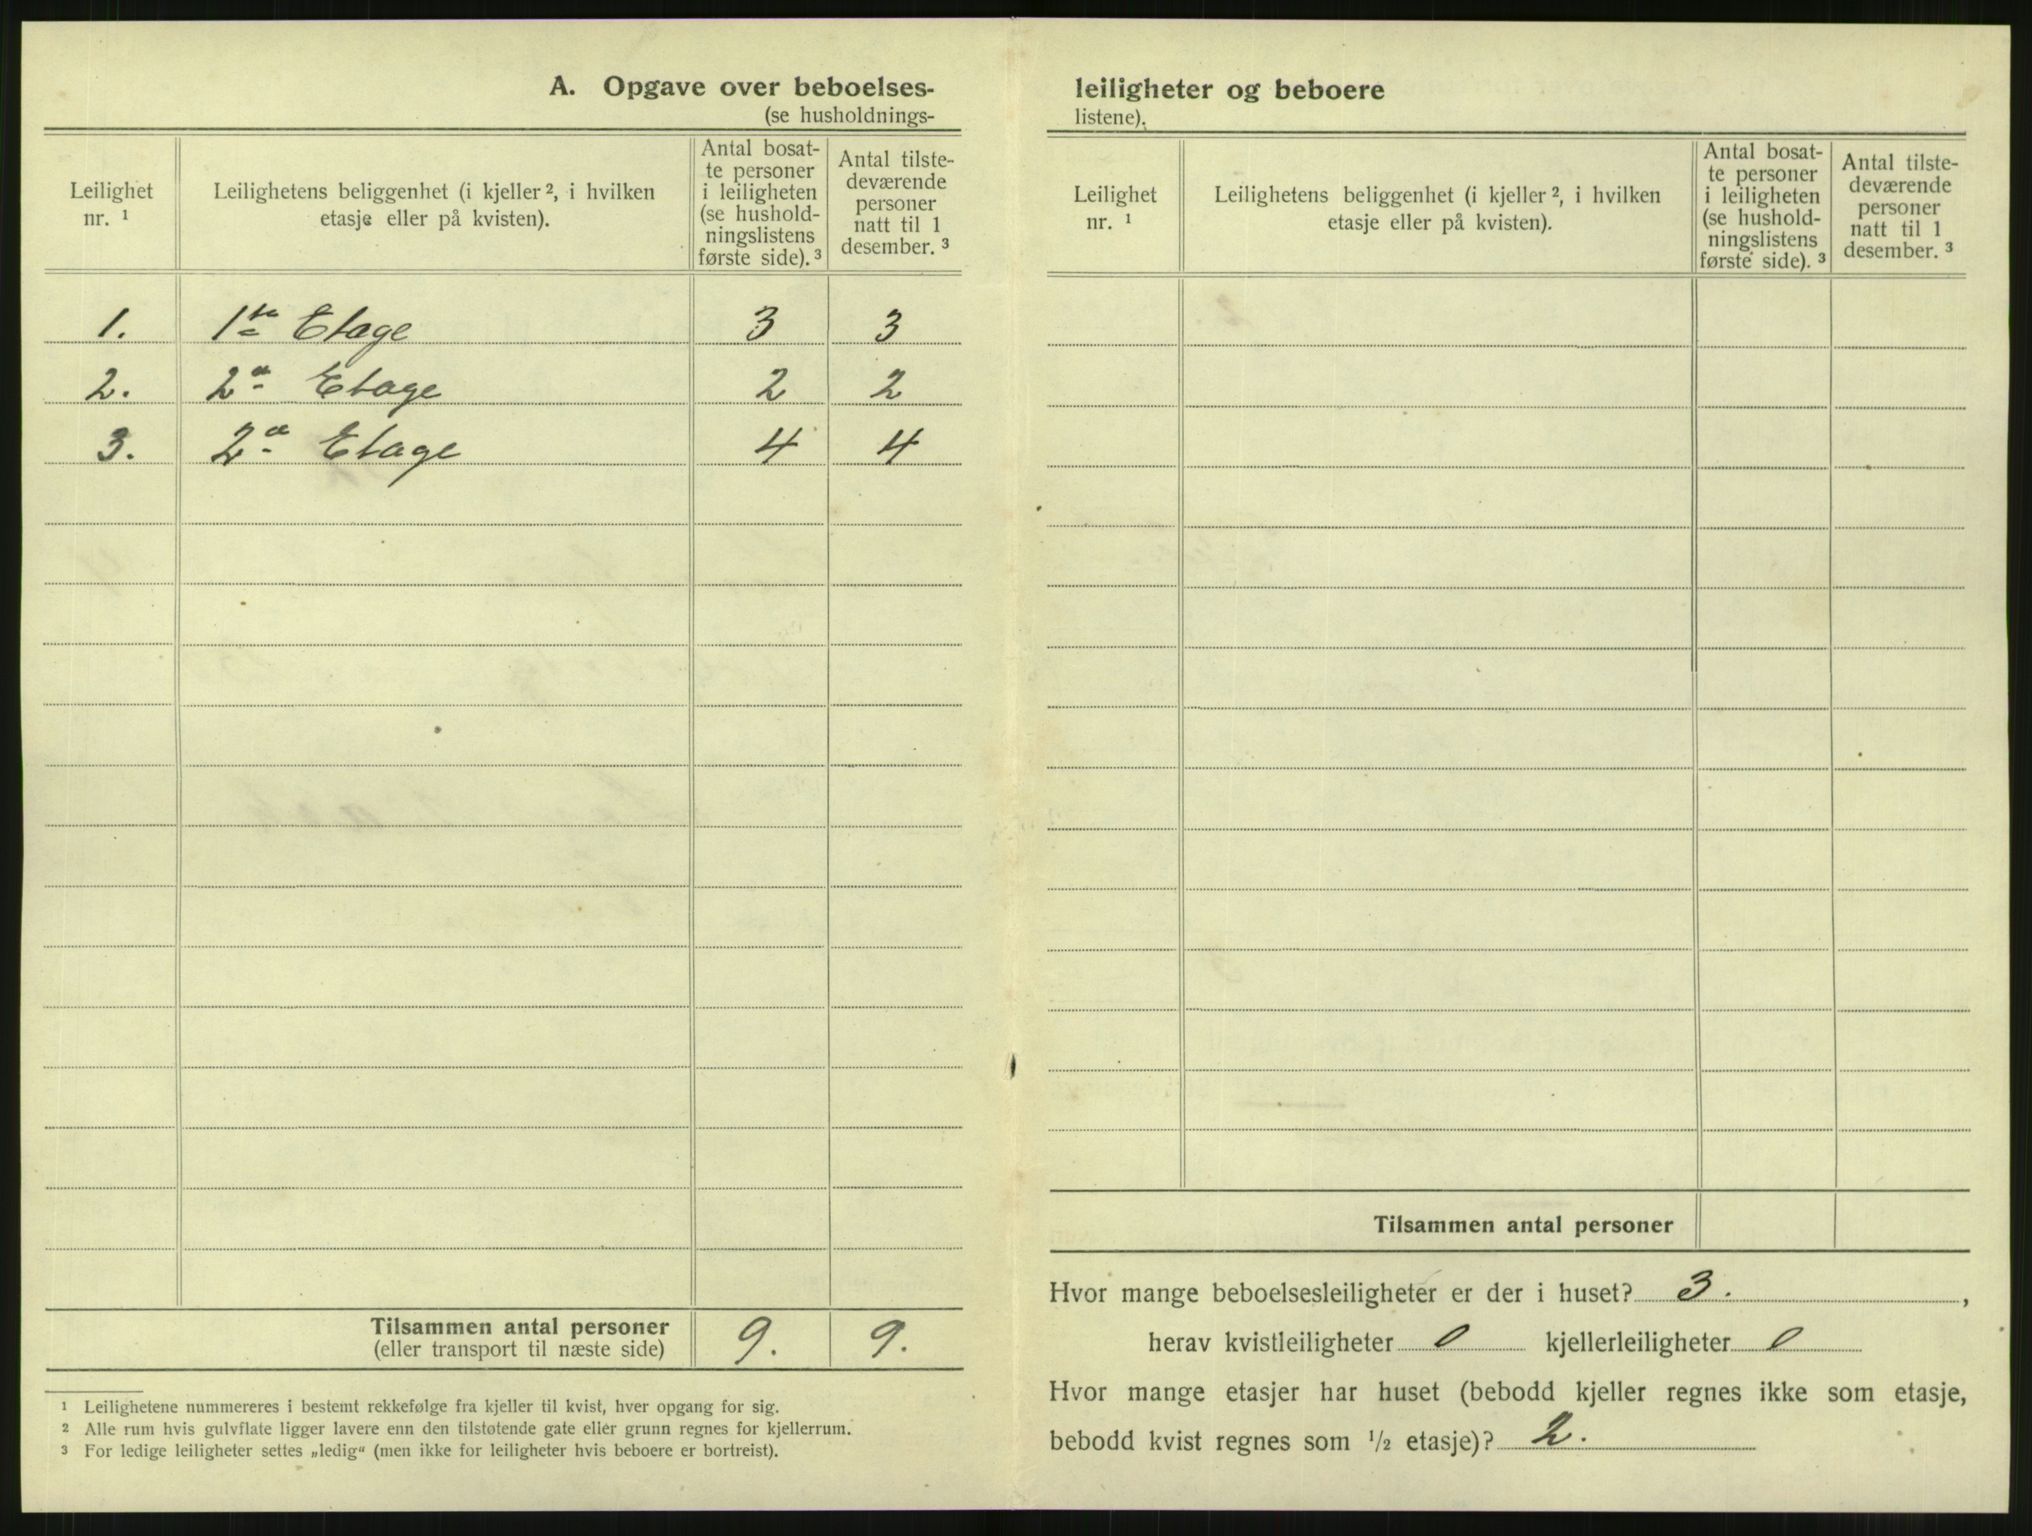 A. Opgave over beboelses-
(se husholdnings-
Leilighet nr. ¹
Leilighetens beliggenhet (i kjeller ², i hvilken etasje eller på kvisten).
Antal bosat-
te personer
i leiligheten
(se hushold-
ningslistens
første side). ³
Antal tilste-
deværende
personer
natt til 1
desember. ³
1. 1ste Etage 3 3
2. 2a Etage 2 2
3. 2a Etage 4 4
Tilsammen antal personer 9. 9.
(eller transport til næste side)
¹ Leilighetene nummereres i bestemt rekkefølge fra kjeller til kvist, hver opgang for sig.
² Alle rum hvis gulvflate ligger lavere enn den tilstøtende gate eller grunn regnes for kjellerrum.
³ For ledige leiligheter settes „ledig“ (men ikke for leiligheter hvis beboere er bortreist).
leiligheter og beboere
listene).
Leilighet nr. ¹
Leilighetens beliggenhet (i kjeller ², i hvilken etasje eller på kvisten).
Antal bosat-
te personer
i leiligheten
(se hushold-
ningslistens
første side). ³
Antal tilste-
deværende
personer
natt til 1
desember. ³
Tilsammen antal personer
Hvor mange beboelsesleiligheter er der i huset? 3. ,
herav kvistleiligheter 0 kjellerleiligheter 0
Hvor mange etasjer har huset (bebodd kjeller regnes ikke som etasje,
bebodd kvist regnes som ½ etasje)? 2.